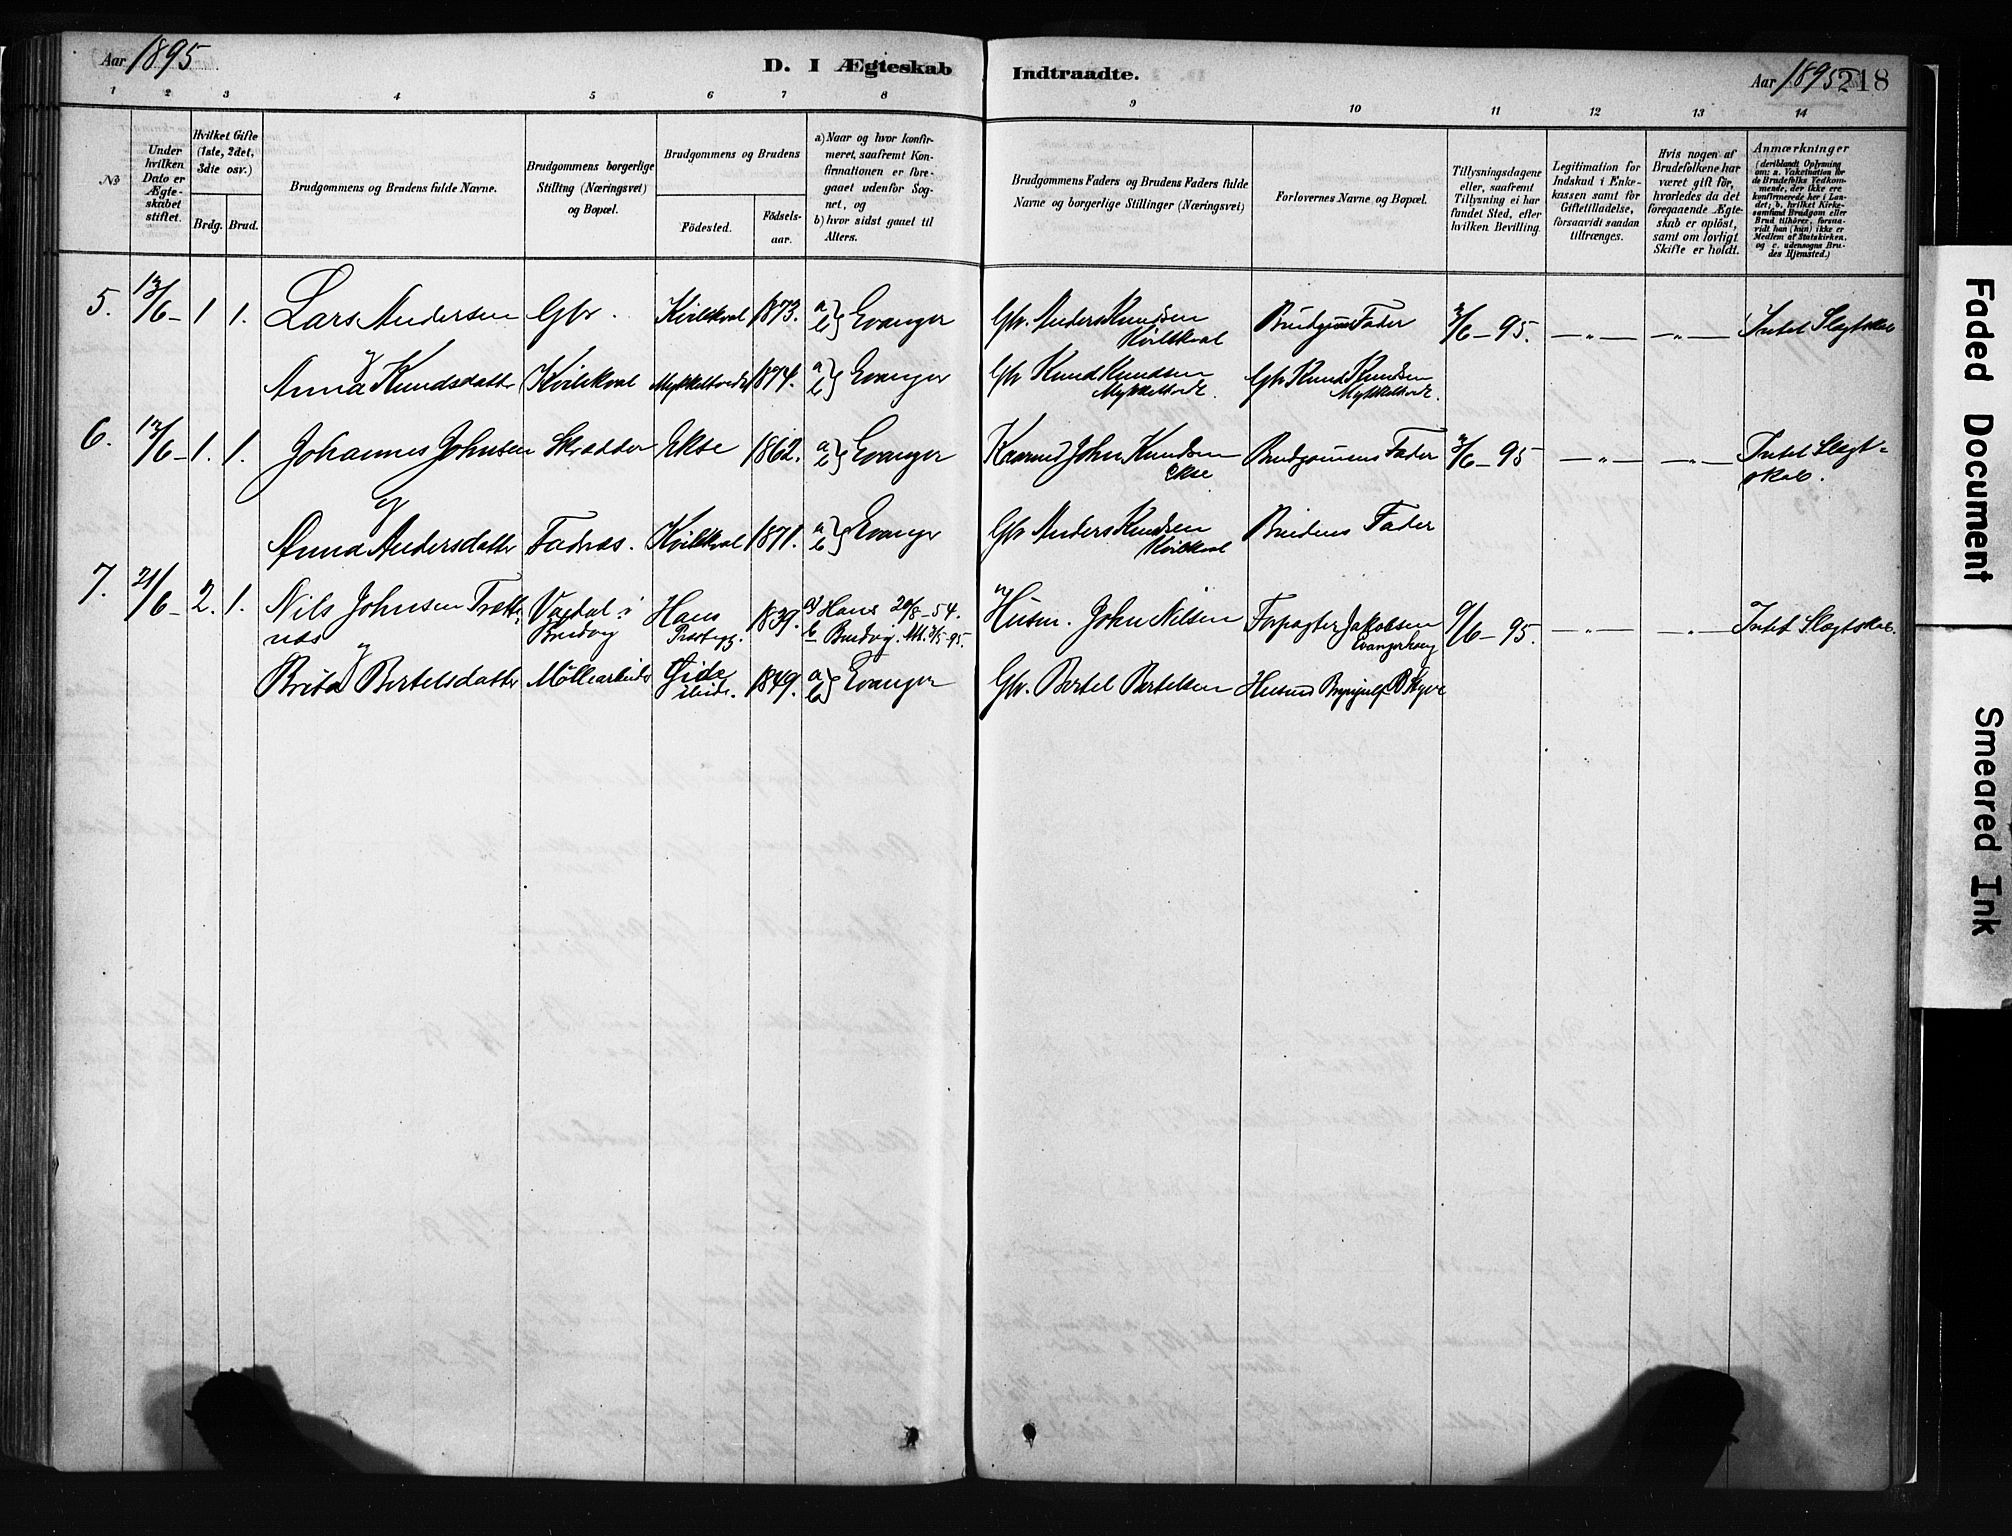 Aar 1895
D. I Ægteskab
Indtraadte.
Aar 1895
218
1 2 3 4 5 6 7 8 9 10 11 12 13 14
No
Under hvilken Dato er Ægteskabet stiftet.
Hvilket Gifte (1ste, 2det, 3die osv.)
Brdg. Brud.
Brudgommens og Brudens fulde Navne.
Brudgommens borgerlige Stilling (Næringsvei) og Bopæl.
Brudgommens og Brudens
Fødested.
Fødselsaar.
a) Naar og hvor konfirmeret, saafremt Konfirmationen er foregaaet udenfor Sognet, og
b) hvor sidst gaaet til Alters.
Brudgommens Faders og Brudens Faders fulde Navne og borgerlige Stillinger (Næringsvei)
Forlovernes Navne og Bopæl.
Tillysningsdagene eller, saafremt Tillysning ei har fundet Sted, efter hvilken Bevilling.
Legitimation for Indskud i Enkekassen samt for Giftetilladelse, forsaavidt saadan tiltrænges.
Hvis nogen af Brudefolkene har været gift før, hvorledes da det foregaaende Ægteskab er opløst, samt om lovligt Skifte er holdt.
Anmærkninger
(deriblandt Oplysning om: a. Vakcination for de Brudefolks Vedkommende, der ikke ere konfirmerede her i Landet; b. hvilket Kirkesamfund Brudgom eller Brud tilhører, forsaavidt han (hun) ikke er Medlem af Statskirken, og c. udensogns Brudes Hjemsted.)
5. 13/6 - 1 1. Lars Andersen Gbr. Kvilekval 1873. a b } Evanger Gbr. Anders Knudsen Kvilekval Brudgoms Fader 3/6 - 95. - „ - - „ - Intet Slægtskab
og
Anna Knudsdatter Kvilekval Mykkeltvedt 1874. a b } Evanger Gbr Knud Knudsen Mykkeltvedt. Gbr Knud Knudsen Mykkeltvedt.
6. 13/6 - 1. 1. Johannes Johnsen Skrædder Ekse 1862. a b } Evanger Kaarmd John Knudsen Ekse Brudgommens Fader 3/6 - 95 - „ - - „ - Intet Slægtskab.
og
Anna Andersdatter Fadnæs. Kvilekval 1871. a b } Evanger Gbr Anders Knudsen Kvilekval Brudens Fader
7. 21/6 - 2. 1. Nils Johnsen Trættenæs Vagdal i Bruvig Hans Præstegj. 1839. a) Hans 20/8 - 54. b Bruvig. Husm. John Nilsen Forpagter Jakobsen 9/6 - 95. - „ - - „ - Intet Slægtskab.
og
Brita Bertelsdatter Møllearbeider 1849. a b } Evanger Gbr. Bertel Bertelsen Husmd Brynjulf B Kyve
Faded Document
Smeared Ink